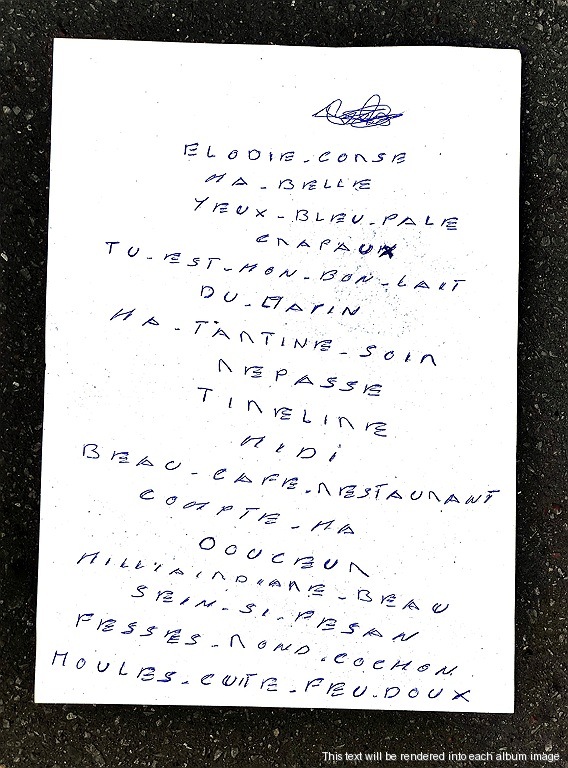 ELODIE-CORSE
MA-BELLE
YEUX-BLEU-PALE
CRAPAUX
TU-EST-MON-BON-LAIT
DU-MATIN
MA-TARTINE-SOIR
REPASSE
TIRELIRE
MIDI
BEAU-CAFE-RESTAURANT
COMPTE-MA
DOUCEUR
MILLIAIRDIARE-BEAU
SEIN-SI-PESAN
FESSES-ROND-COCHON
MOULES-CUITE-FEU-DOUX
This text will be rendered into each album image